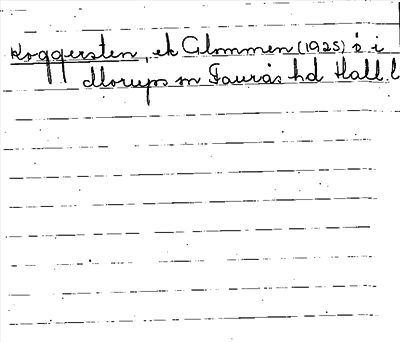 Roggersten, ek Glommen (1925) s i
Morups sn Faurås hd Hall. l